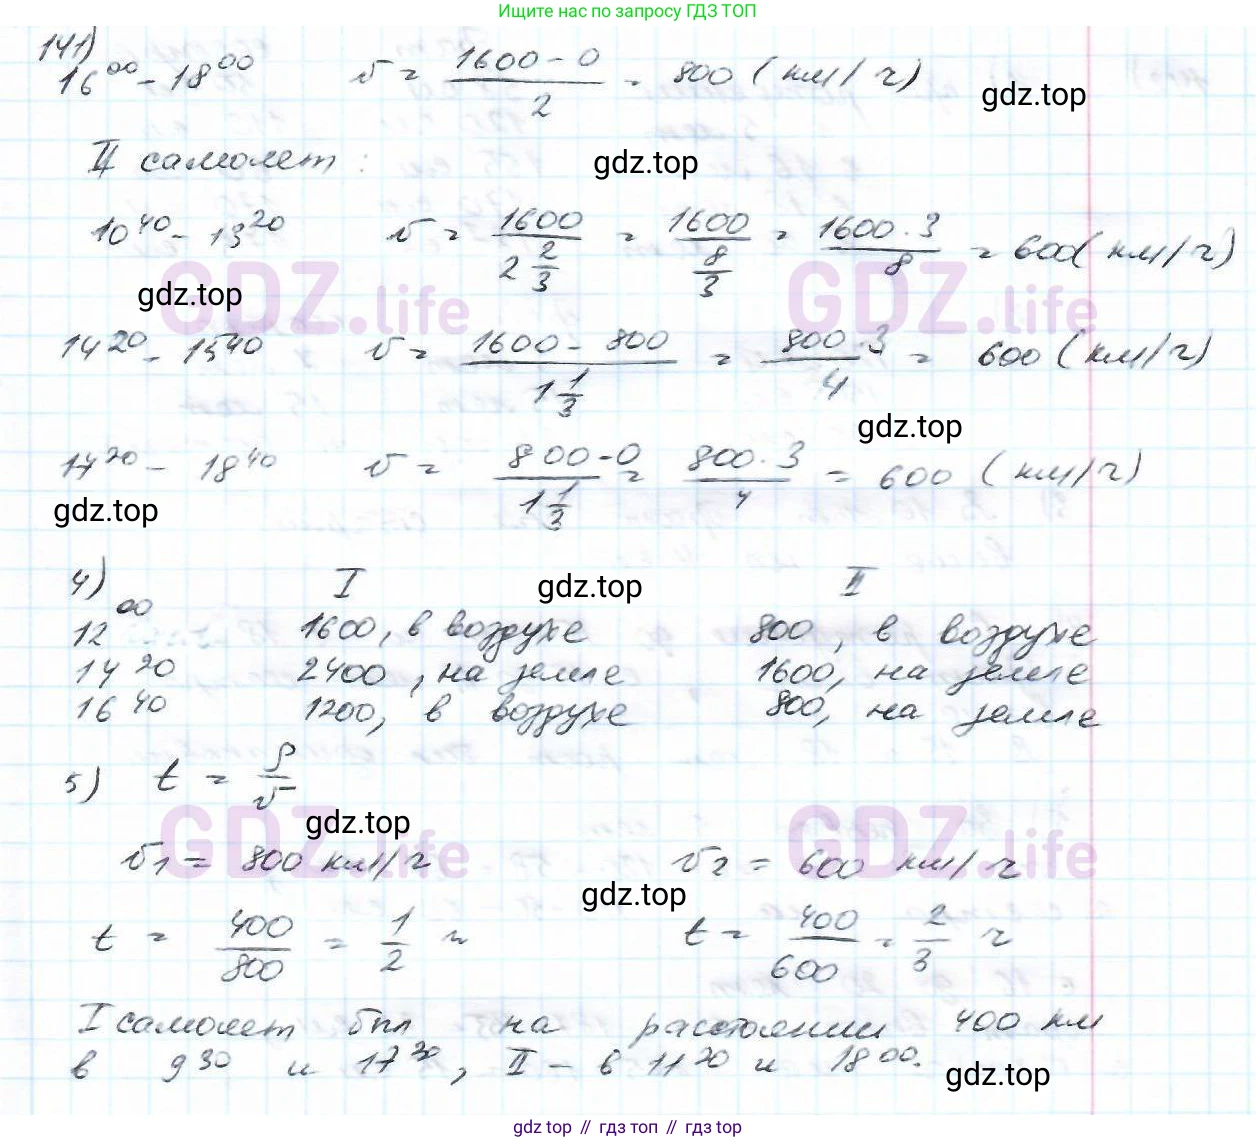 Ищите нас по запросу ГДЗ ТОП
141)
16⁰⁰ - 18⁰⁰ v = (1600 - 0)/2 = 800 (км/ч)
gdz.top
II самолет:
gdz.top
10⁴⁰ - 13²⁰ v = 1600/(2 2/3) = 1600/(8/3) = (1600 · 3)/8 = 600 (км/ч)
GDZ.life GDZ.life
gdz.top
14²⁰ - 15⁴⁰ v = (1600 - 800)/(1 1/3) = (800 · 3)/4 = 600 (км/ч)
gdz.top
17²⁰ - 18⁴⁰ v = (800 - 0)/(1 1/3) = (800 · 3)/4 = 600 (км/ч)
gdz.top
4) I II
gdz.top
12⁰⁰ 1600, в воздухе 800, в воздухе
14²⁰ 2400, на земле 1600, на земле
16⁴⁰ 1200, в воздухе 800, на земле
5) t = S/v
gdz.top
GDZ.life GDZ.life
v₁ = 800 км/ч v₂ = 600 км/ч
gdz.top
t = 400/800 = 1/2 ч t = 400/600 = 2/3 ч
I самолет был на расстоянии 400 км
в 9³⁰ и 17³⁰, II - в 11²⁰ и 18⁰⁰.
gdz.top
gdz.top // гдз топ // gdz.top